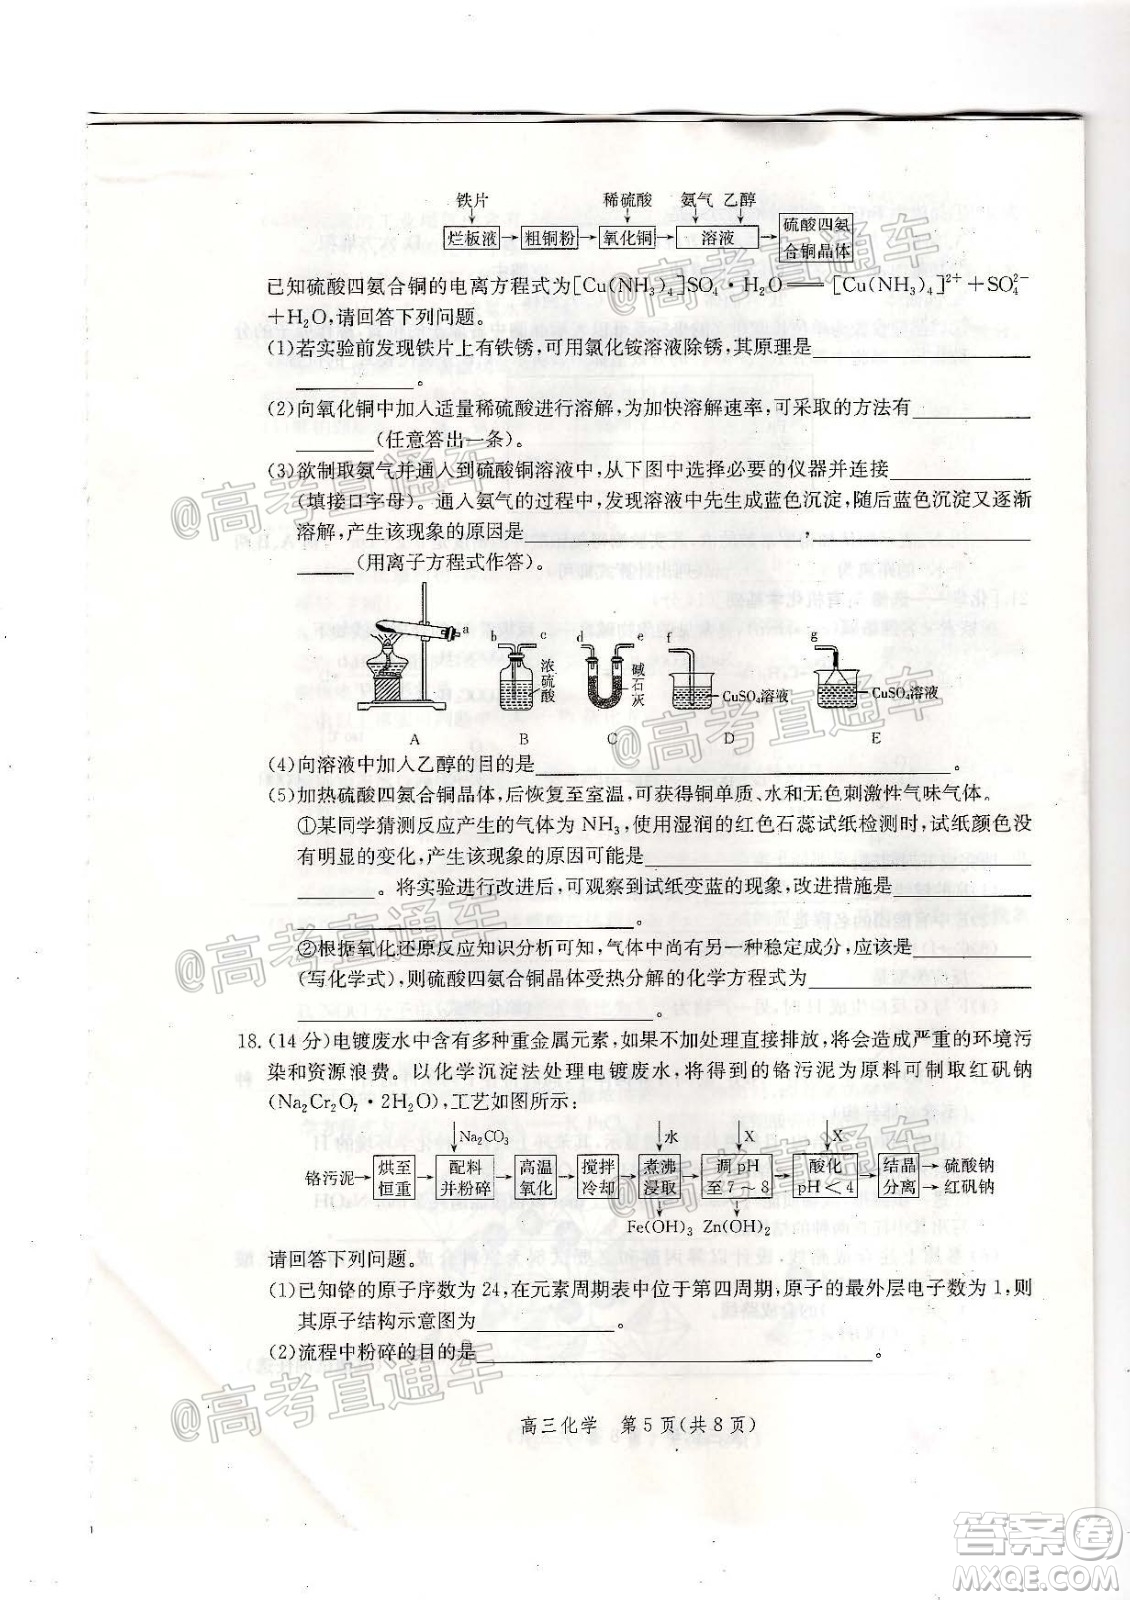 铁片 稀硫酸 氨气 乙醇
烂板液 粗铜粉 氧化铜 溶液 硫酸四氨合铜晶体
已知硫酸四氨合铜的电离方程式为[Cu(NH₃)₄]SO₄·H₂O══[Cu(NH₃)₄]²⁺+SO₄²⁻
+H₂O,请回答下列问题。
(1)若实验前发现铁片上有铁锈,可用氯化铵溶液除锈,其原理是____
____。
(2)向氧化铜中加入适量稀硫酸进行溶解,为加快溶解速率,可采取的方法有____
____(任意答出一条)。
(3)欲制取氨气并通入到硫酸铜溶液中,从下图中选择必要的仪器并连接____
(填接口字母)。通入氨气的过程中,发现溶液中先生成蓝色沉淀,随后蓝色沉淀又逐渐
溶解,产生该现象的原因是____,____
____(用离子方程式作答)。
a b c d e f g
浓硫酸 碱石灰 CuSO₄溶液 CuSO₄溶液
A B C D E
(4)向溶液中加入乙醇的目的是____。
(5)加热硫酸四氨合铜晶体,后恢复至室温,可获得铜单质、水和无色刺激性气味气体。
①某同学猜测反应产生的气体为NH₃,使用湿润的红色石蕊试纸检测时,试纸颜色没
有明显的变化,产生该现象的原因可能是____
____。将实验进行改进后,可观察到试纸变蓝的现象,改进措施是____
____。
②根据氧化还原反应知识分析可知,气体中尚有另一种稳定成分,应该是____
(写化学式),则硫酸四氨合铜晶体受热分解的化学方程式为____
____。
18.(14分)电镀废水中含有多种重金属元素,如果不加处理直接排放,将会造成严重的环境污
染和资源浪费。以化学沉淀法处理电镀废水,将得到的铬污泥为原料可制取红矾钠
(Na₂Cr₂O₇·2H₂O),工艺如图所示:
Na₂CO₃ 水 X X
铬污泥 烘至恒重 配料并粉碎 高温氧化 搅拌冷却 煮沸浸取 调pH至7~8 酸化pH<4 结晶分离 硫酸钠 红矾钠
Fe(OH)₃ Zn(OH)₂
请回答下列问题。
(1)已知铬的原子序数为24,在元素周期表中位于第四周期,原子的最外层电子数为1,则
其原子结构示意图为____。
(2)流程中粉碎的目的是____。
高三化学 第5页(共8页)
@高考直通车
@高考直通车
@高考直通车
@高考直通车
@高考直通车
@高考直通车
@高考直通车
答案卷
MXQE.COM